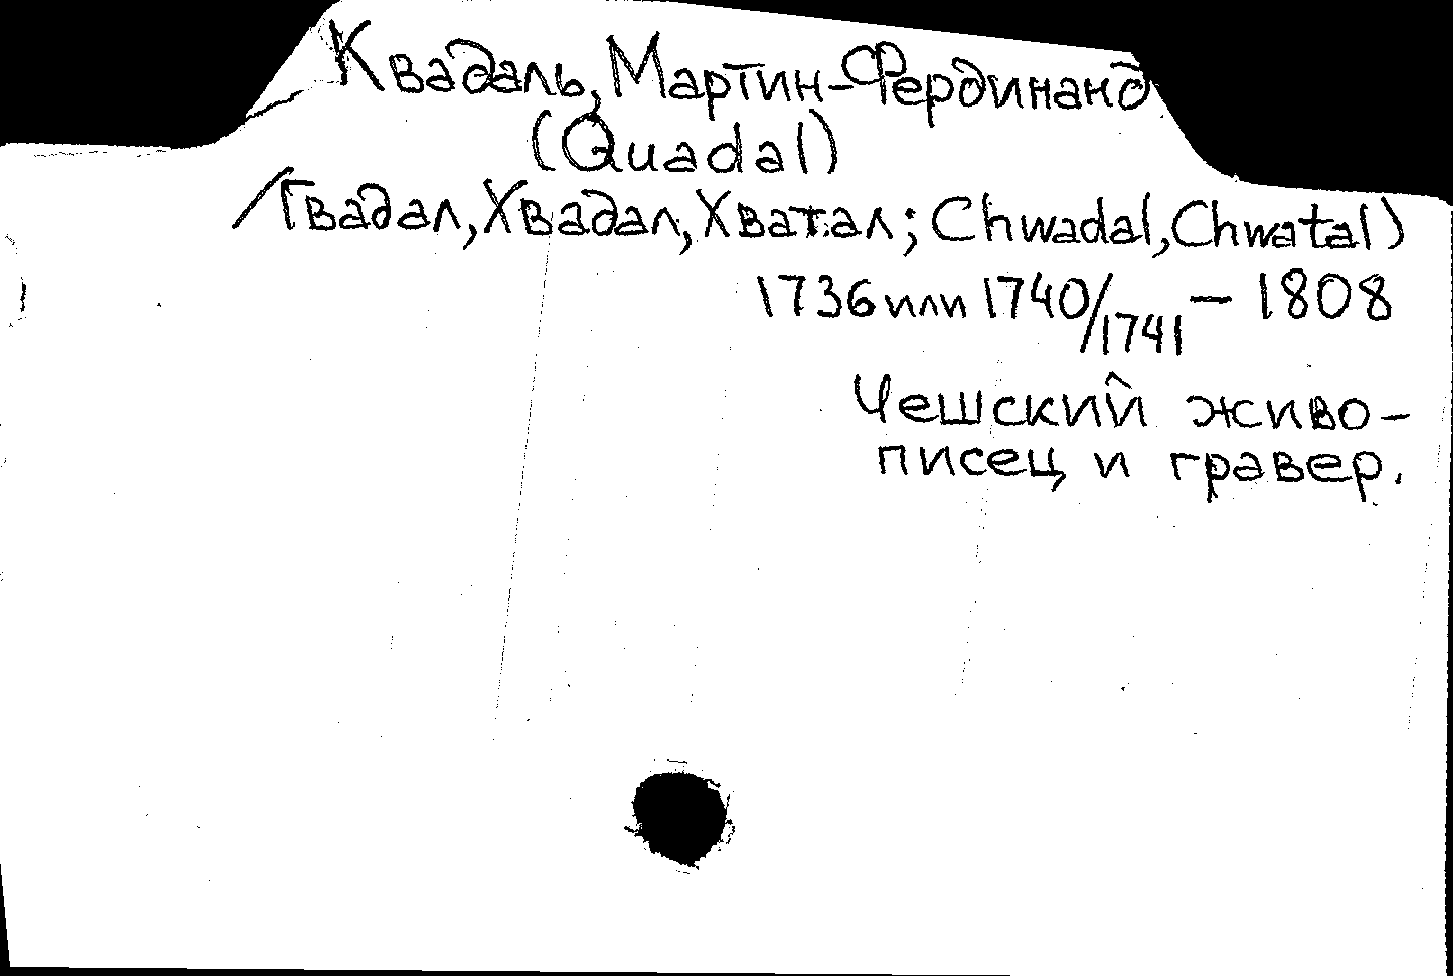 Квадаль, Мартин-Фердинанд
(Quadal)
/Гвадал, Хвадал, Хватал; Chwadal, Chwatal)
1736 или 1740/1741 — 1808
Чешский живо-
писец и гравер.